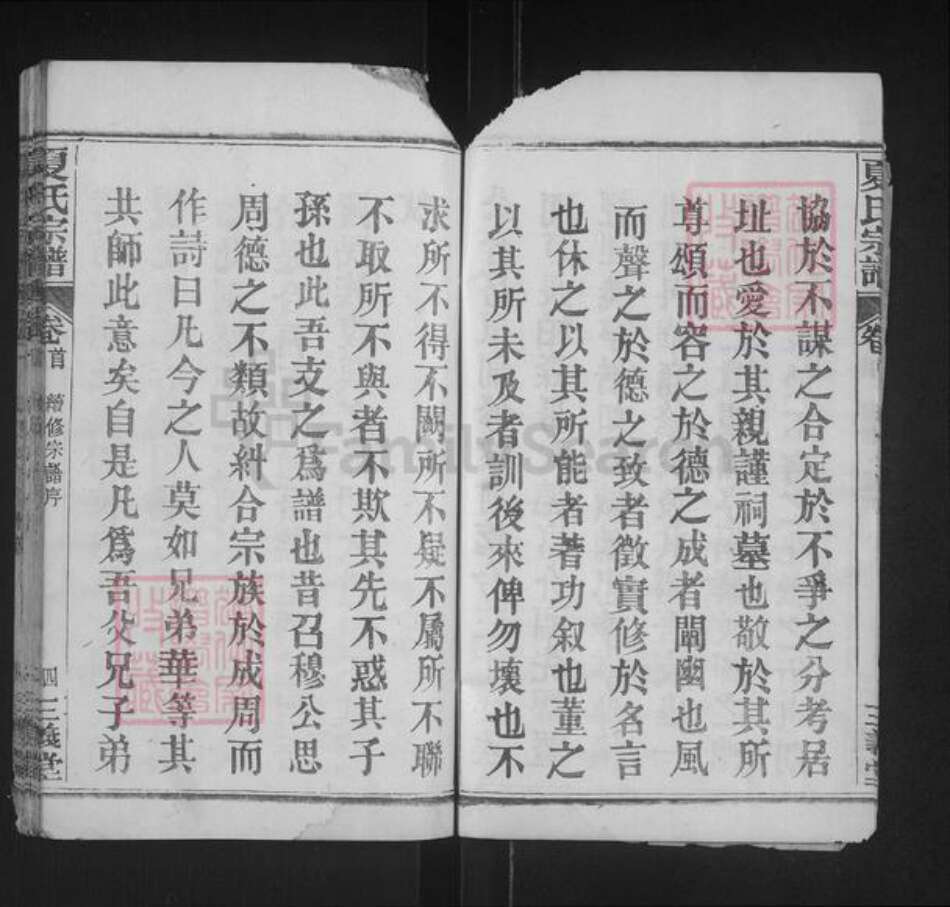 夏氏宗譜
協於不謀之合定於不爭之分考居
址也愛於其親謹祠墓也敬於其所
尊頌而容之於德之成者闡幽也風
而聲之於德之致者徵實修於名言
也休之以其所能者著功叙也董之
以其所未及者訓後來俾勿壞也不
求所不得不闕所不疑不屬所不聯
不取所不與者不欺其先不惑其子
孫也此吾支之為譜也昔召穆公思
周德之不類故糾合宗族於成周而
作詩曰凡今之人莫如兄弟華等其
共師此意矣自是凡為吾父兄子弟
夏氏宗譜 卷首 續修宗譜序 四 三義堂
FamilySearch